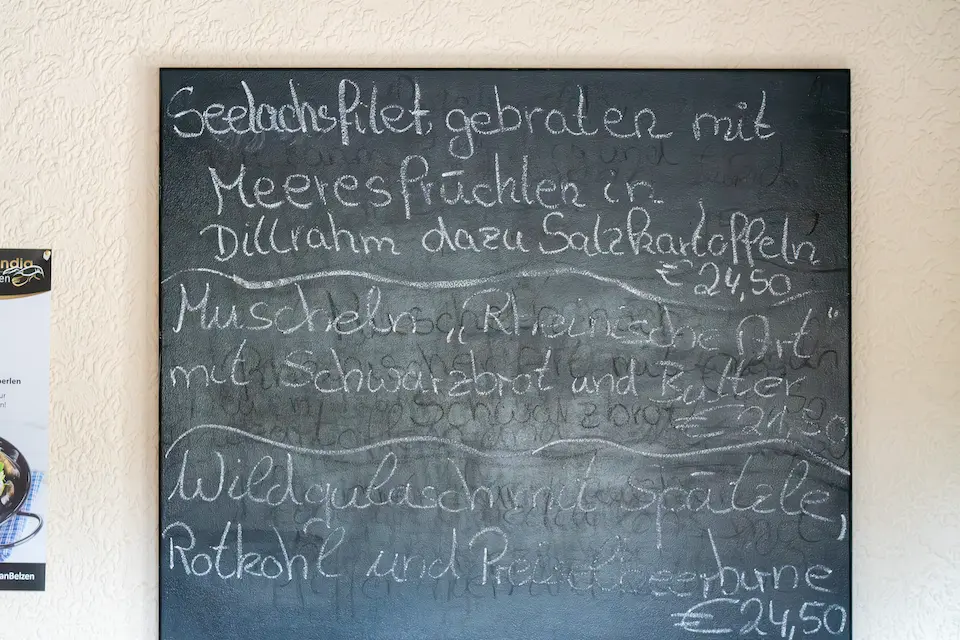 Seelachsfilet, gebraten mit
Meeresfrüchten in
Dillrahm dazu Salzkartoffeln
€ 24,50
Muscheln „Rheinische Art"
mit Schwarzbrot und Butter
€ 21,50
Wildgulasch mit Spätzle,
Rotkohl und Preiselbeerbirne
€ 24,50
anBelzen